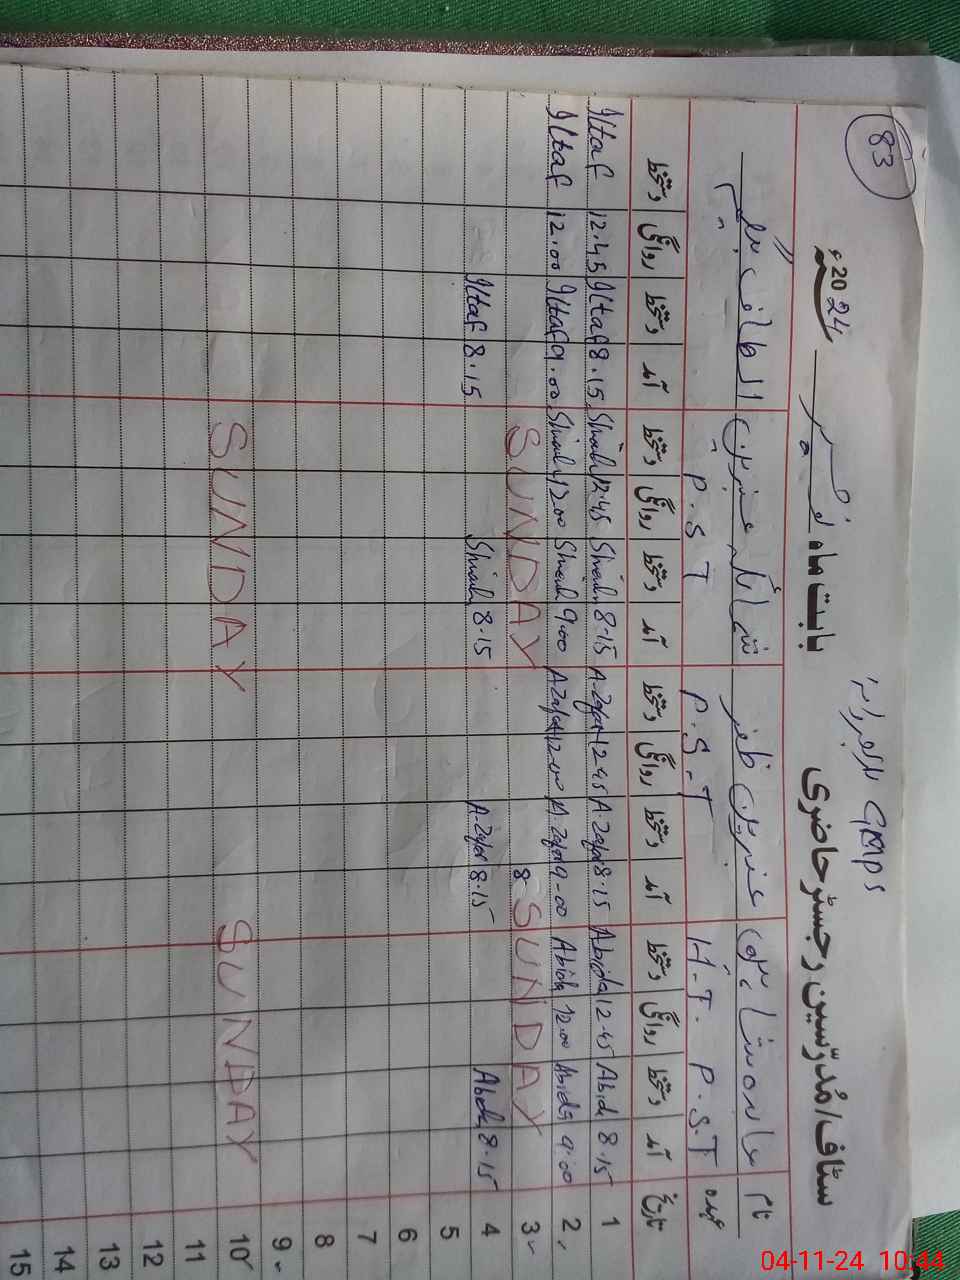 83
GMPS
سٹاف/مُدرّسین رجسٹر حاضری بابت ماہ نومبر 2024ء
نام عابدہ شاہین عنبرین ظفر شمائلہ عنبرین الطاف بیگم
عہدہ H.T. P.S.T P.S.T P.S.T
تاریخ آمد دستخط روانگی دستخط آمد دستخط روانگی دستخط آمد دستخط روانگی دستخط آمد دستخط روانگی دستخط
1 8.15 Abida 12.45 Abida 8.15 A.Zafar 12.45 A.Zafar 8.15 12.45 8.15 Iltaf 12.45 Iltaf
2 9.00 Abida 12.00 Abida 9.00 A.Zafar 12.00 A.Zafar 9.00 12.00 9.00 Iltaf 12.00 Iltaf
3 SUNDAY 8 SUNDAY
4 8.15 Abida 8.15 A.Zafar 8.15 8.15 Iltaf
5
6
7
8
9
10 SUNDAY SUNDAY
11
12
13
14
15
04-11-24 10:44